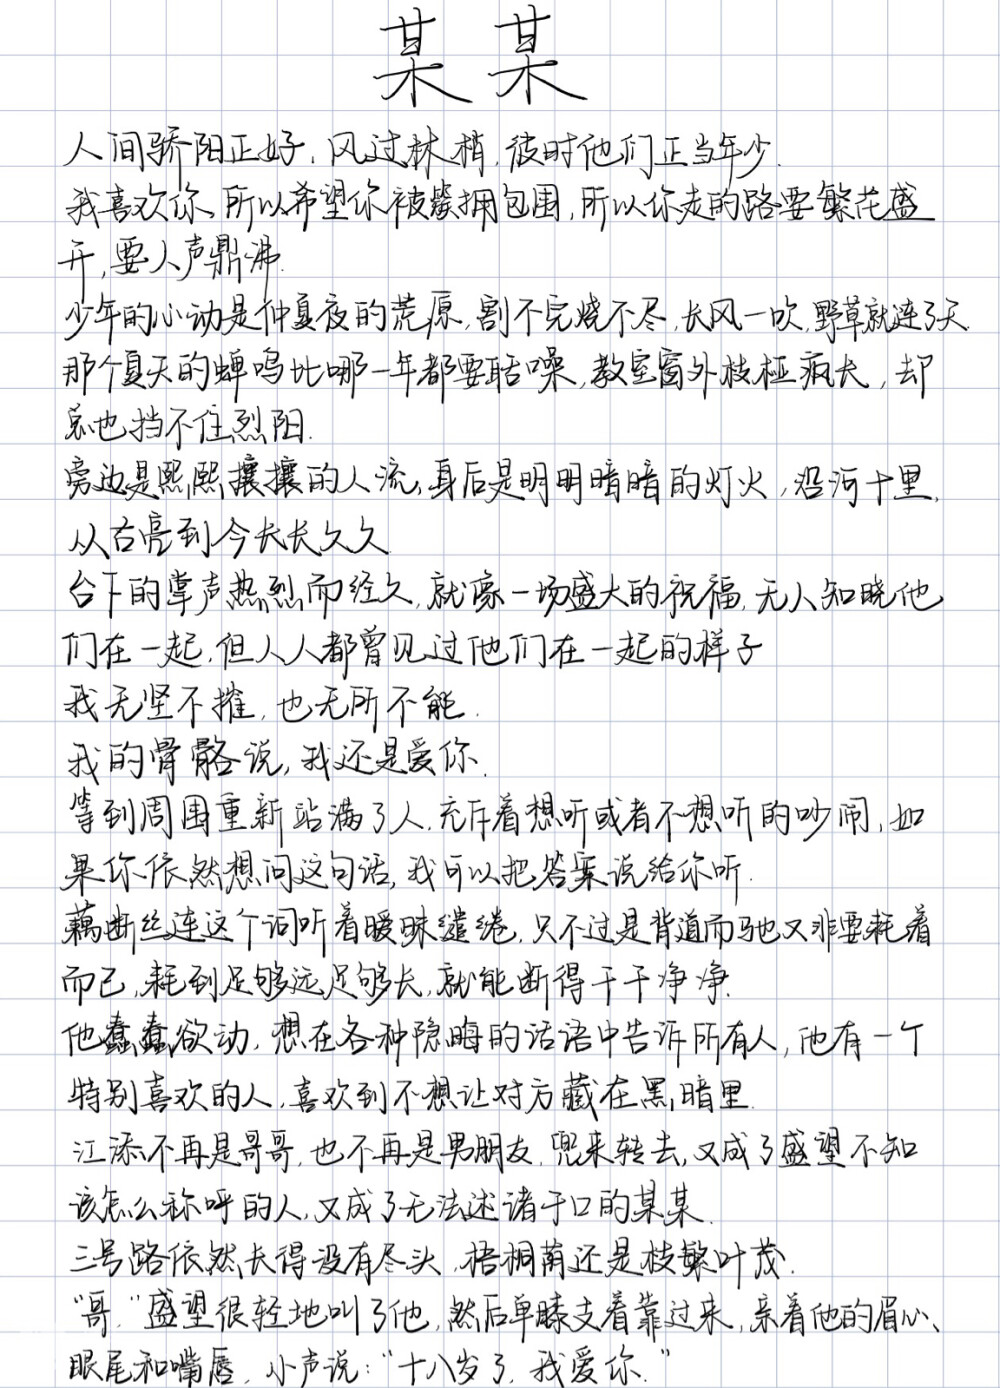 某某
人间骄阳正好,风过林梢,彼时他们正当年少.
我喜欢你,所以希望你被簇拥包围,所以你走的路要繁花盛
开,要人声鼎沸.
少年的心动是仲夏夜的荒原,割不完烧不尽,长风一吹,野草就连了天
那个夏天的蝉鸣比哪一年都要聒噪,教室窗外枝桠疯长,却
总也挡不住烈阳.
旁边是熙熙攘攘的人流,身后是明明暗暗的灯火,沿河十里,
从古亮到今长长久久
台下的掌声热烈而经久,就像一场盛大的祝福,无人知晓他
们在一起,但人人都曾见过他们在一起的样子
我无坚不摧,也无所不能.
我的骨骼说,我还是爱你.
等到周围重新站满了人,充斥着想听或者不想听的吵闹,如
果你依然想问这句话,我可以把答案说给你听.
藕断丝连这个词听着暧昧缱绻,只不过是背道而驰又非要耗着
而已,耗到足够远足够长,就能断得干干净净.
他蠢蠢欲动,想在各种隐晦的话语中告诉所有人,他有一个
特别喜欢的人,喜欢到不想让对方藏在黑暗里.
江添不再是哥哥,也不再是男朋友,兜来转去,又成了盛望不知
该怎么称呼的人,又成了无法述诸于口的某某.
三号路依然长得没有尽头,梧桐荫还是枝繁叶茂.
“哥,”盛望很轻地叫了他,然后单膝支着靠过来,亲着他的眉心、
眼尾和嘴唇,小声说:“十八岁了,我爱你.”